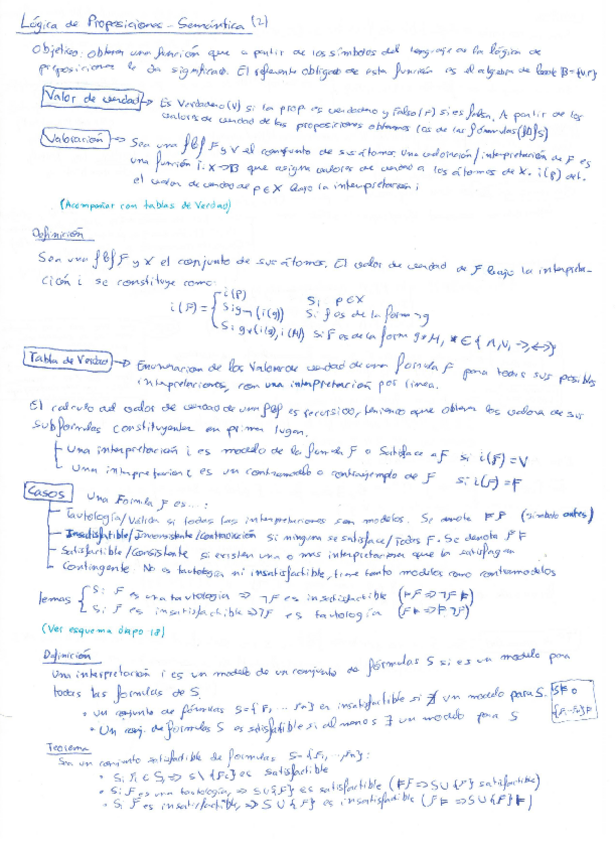 Lógica de Proposiciones - Semántica (2)
Objetivo: obtener una función que a partir de los símbolos del lenguaje de la lógica de
proposiciones le da significado. El referente obligado de esta función es el algebra de Boole B={V,F}
Valor de verdad → Es Verdadero (V) si la prop. es verdadera y Falso (F) si es falsa. A partir de los
valores de verdad de las proposiciones obtenemos los de las fórmulas (fbfs)
Valoración → Sea una fbf F y X el conjunto de sus átomos, una valoración / interpretación de F es
una función i: X→B que asigna valores de verdad a los átomos de X. i(p) det.
el valor de verdad de p∈X bajo la interpretación i
(Acompañar con tablas de Verdad)
Definición
Sea una fbf F y X el conjunto de sus átomos. El valor de verdad de F bajo la interpreta-
ción i se constituye como:
i(p) Si p∈X
i(F) = { Sig¬(i(g)) Si F es de la forma ¬g
Sig*(i(g), i(H)) Si F es de la forma g*H, *∈{∧,∨,→,↔}
Tabla de Verdad → Enumeración de los valores de verdad de una formula F para todas sus posibles
interpretaciones, con una interpretación por línea.
El calculo del valor de verdad de una fbf es recursivo, teniendo que obtener los valores de sus
subformulas constituyentes en primer lugar.
- Una interpretación i es modelo de la formula F o Satisface a F si i(F)=V
- Una interpretación i es un contramodelo o contraejemplo de F si i(F)=F
Casos Una Formula F es...:
- Tautología/Válida si todas las interpretaciones son modelos. Se denota ⊨F (símbolo antes)
- Insatisfactible/Inconsistente/Contradicción si ninguna se satisface/Todos F. Se denota F⊨
- Satisfactible/Consistente si existen una o mas interpretaciones que la satisfagan
- Contingente: No es tautología ni insatisfactible, tiene tanto modelos como contramodelos
lemas { Si F es una tautología ⇒ ¬F es insatisfactible (⊨F ⇒ ¬F⊨)
Si F es insatisfactible ⇒ ¬F es tautología (F⊨ ⇒ ⊨¬F)
(Ver esquema diapo 18)
Definición
Una interpretación i es un modelo de un conjunto de fórmulas S si es un modelo para
todas las formulas de S.
• Un conjunto de fórmulas S={F₁, ... Fn} es insatisfactible si ∄ un modelo para S. S⊨
{F₁...Fn}⊨
• Un conj. de formulas S es satisfactible si al menos ∃ un modelo para S
Teorema
Sea un conjunto satisfactible de formulas S={F₁, ..., Fn}:
• Si Fi∈S, ⇒ S\{Fi} es satisfactible
• Si F es una tautología, ⇒ S∪{F} es satisfactible (⊨F ⇒ S∪{F} satisfactible)
• Si F es insatisfactible, ⇒ S∪{F} es insatisfactible (F⊨ ⇒ S∪{F}⊨)